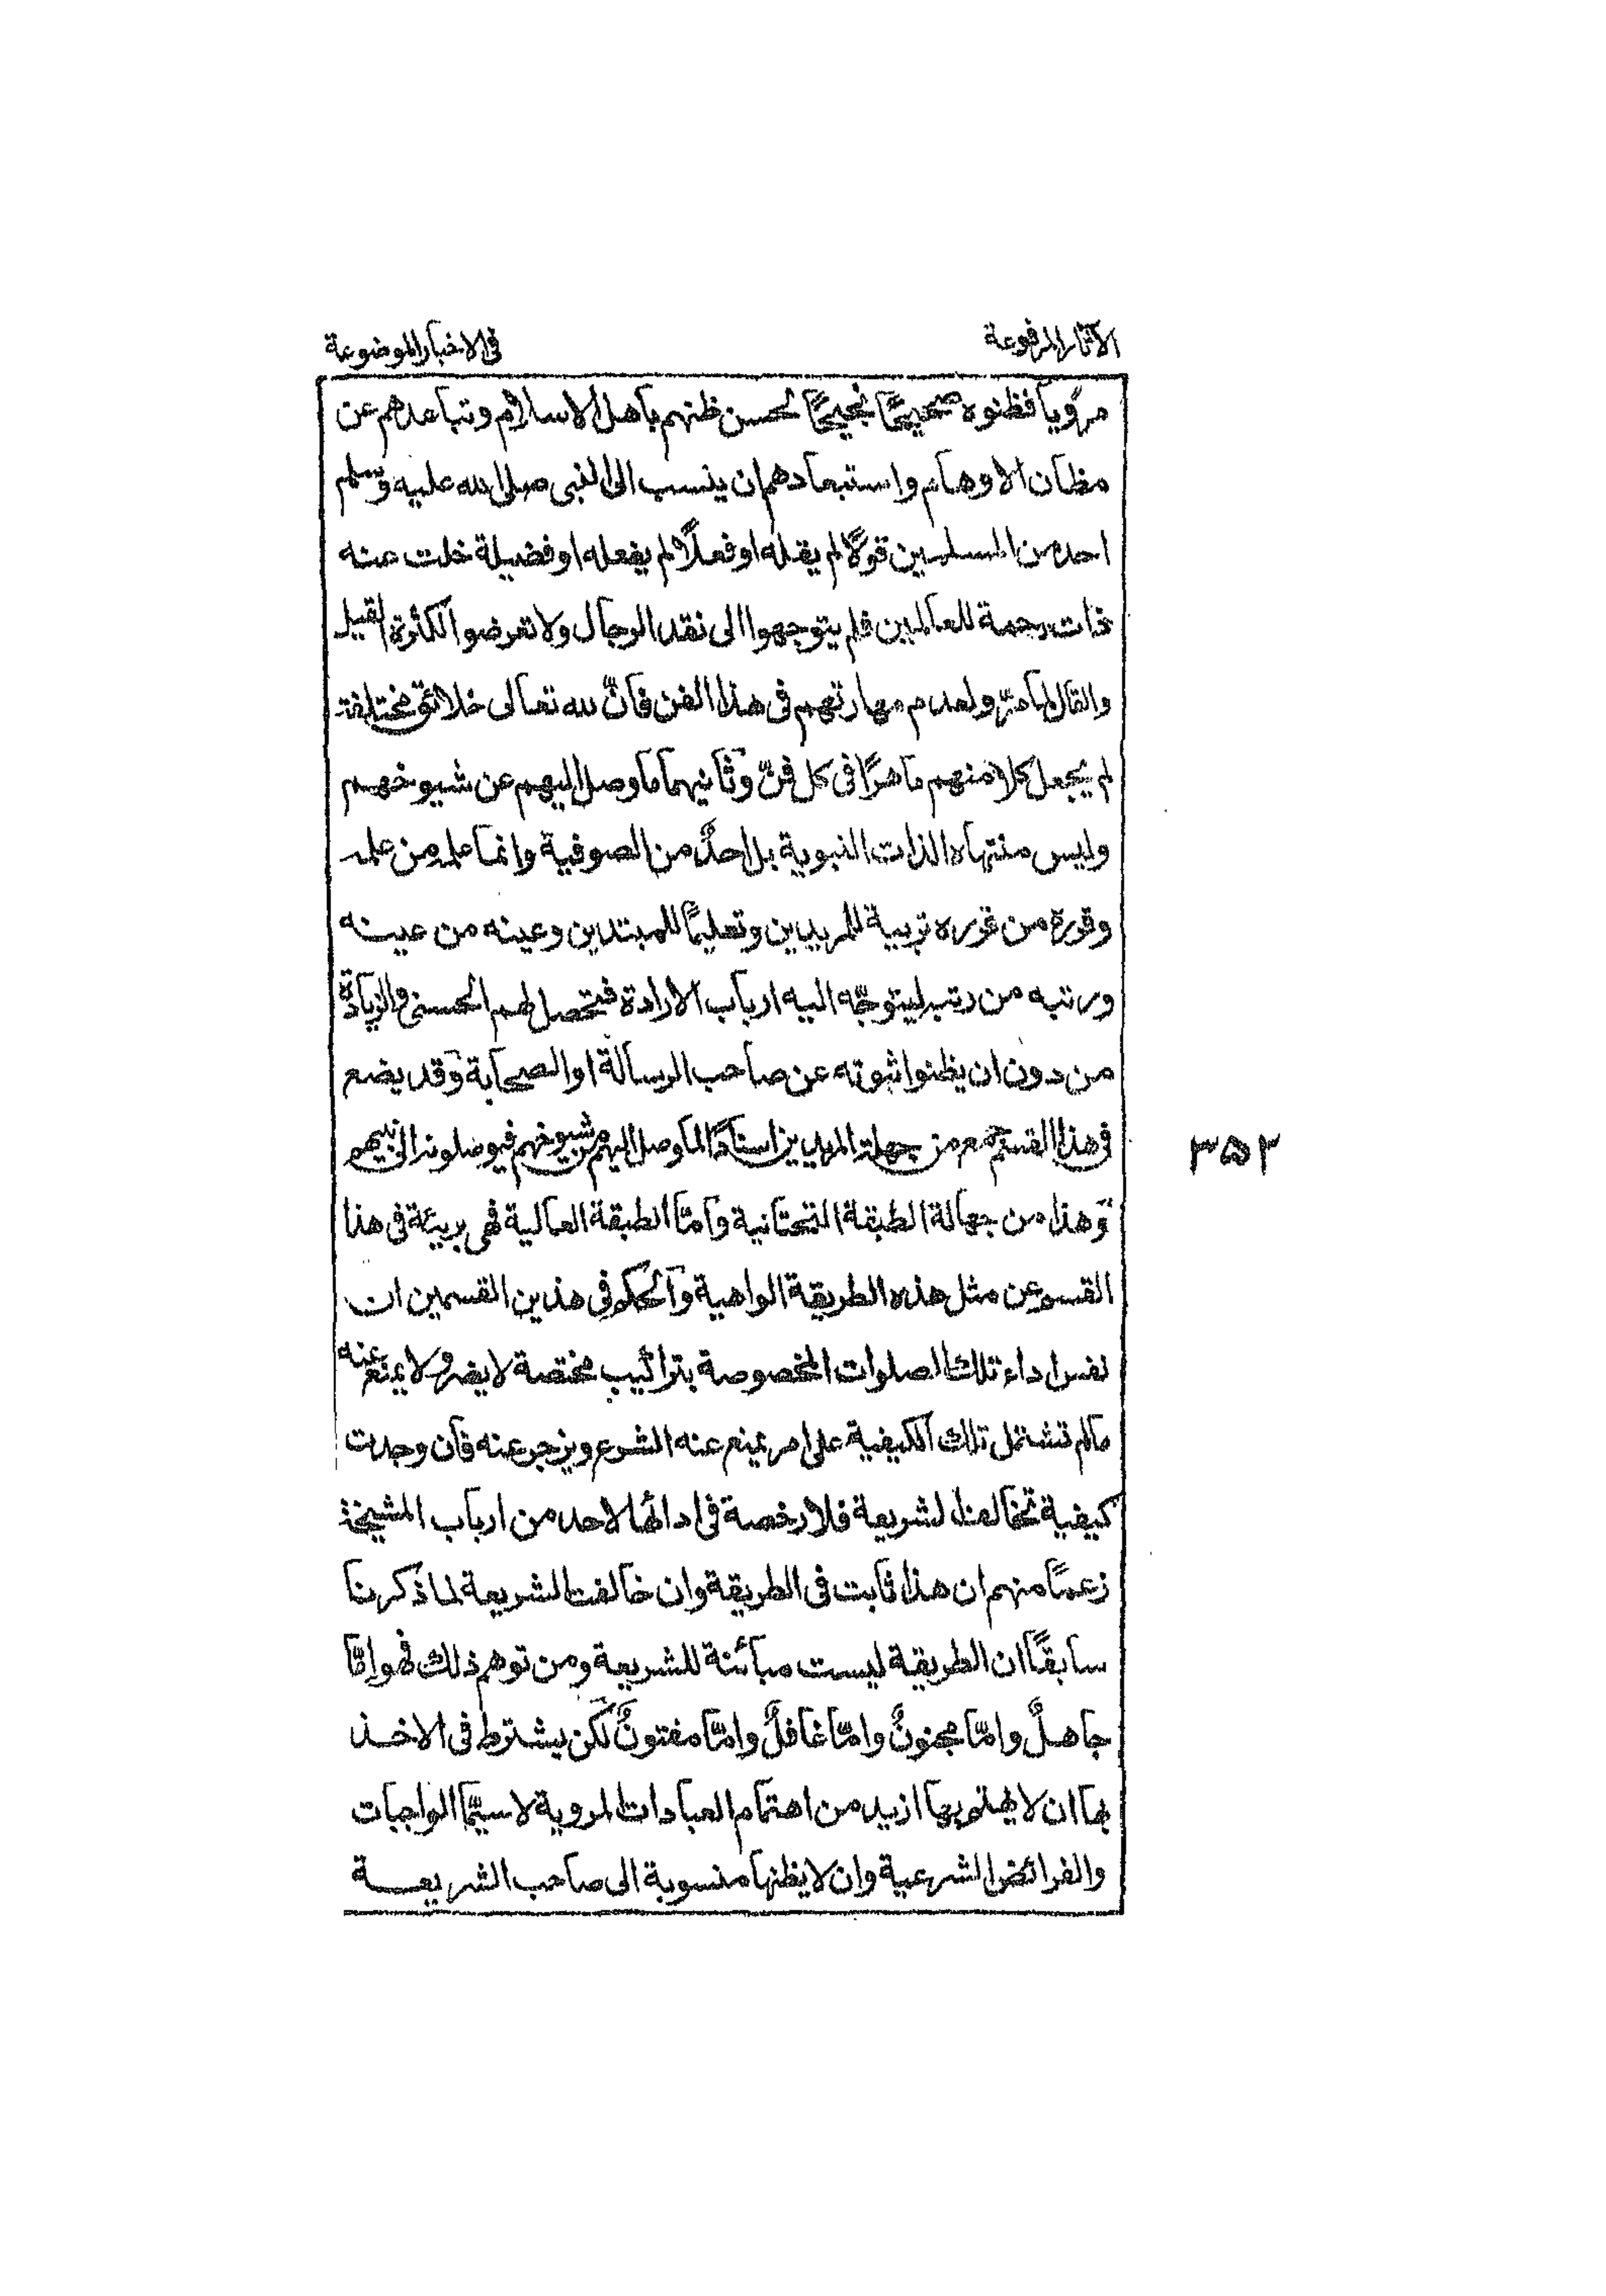 الآثار المرفوعة
فى الاخبار الموضوعة
مرويا فظنوه صحيحًا نجيحًا لحسن ظنهم باهل الاسلام وتباعدهم عن
مظان الاوهام واستبعادهم ان ينسب الى النبى صلى الله عليه وسلم
احد من المسلمين قولًا لم يقله او فعلًا لم يفعله او فضيلة خلت عنه
ذات رحمة للعالمين فلم يتوجهوا الى نقد الرجال ولا تعرضوا لكثرة القيل
والقال لما مرّ ولعدم مهارتهم فى هذا الفن فانّ لله تعالى خلائق مختلفة
لم يجعل كلا منهم ماهرًا فى كل فنّ وثانيهما ما وصل اليهم عن شيوخهم
وليس منتهاه الذات النبوية بل احدٌ من الصوفية وانما علمه من علمه
وقرره من قرره تربية للمريدين وتعليمًا للمبتدين وعينه من عينه
ورتبه من رتبه ليتوجّه اليه ارباب الارادة فتحصل لهم الحسنى والزيادة
من دون ان يظنوا ثبوته عن صاحب الرسالة او الصحابة وقد يضع
فى هذا القسم جمع من جهلة المريدين اسنادًا لما وصل اليهم من شيوخهم فيوصلونه الى نبيهم
وهذا من جهالة الطبقة التحتانية وامّا الطبقة العالية فهى بريئة فى هذا
القسم عن مثل هذه الطريقة الواهية والحكم فى هذين القسمين ان
نفس اداء تلك الصلوات المخصوصة بتراكيب مختصة لا يضر ولا يمنع عنه
مالم تشتمل تلك الكيفية على امر يمنع عنه الشرع ويزجر عنه فان وجدت
كيفية تخالف الشريعة فلا رخصة فى ادائها لاحد من ارباب المشيخة
زعمًا منهم ان هذا ثابت فى الطريقة وان خالفت الشريعة لما ذكرنا
سابقًا ان الطريقة ليست مبائنة للشريعة ومن توهم ذلك فهو امّا
جاهلٌ وامّا مجنونٌ وامّا غافلٌ وامّا مفتونٌ لكن يشترط فى الاخذ
بها ان لا يهتم بها ازيد من اهتمام العبادات المروية لا سيّما الواجبات
والفرائض الشرعية وان لا يظنها منسوبة الى صاحب الشريعة
۳۵۲